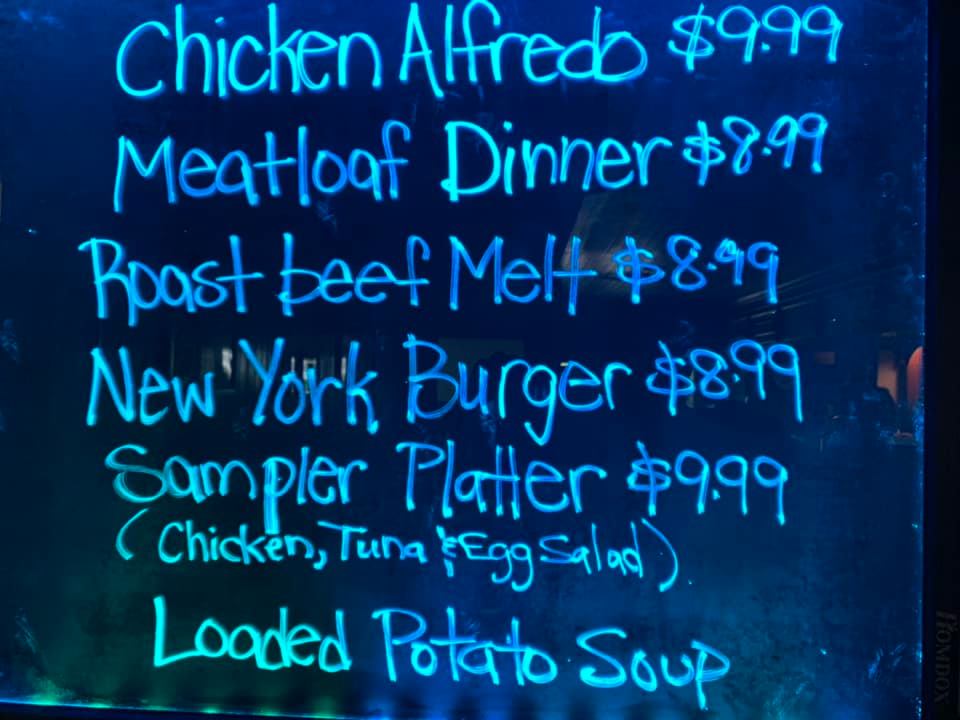 Chicken Alfredo $9.99
Meatloaf Dinner $8.99
Roast beef Melt $8.99
New York Burger $8.99
Sampler Platter $9.99
(Chicken, Tuna & Egg Salad)
Loaded Potato Soup
HOMDOX